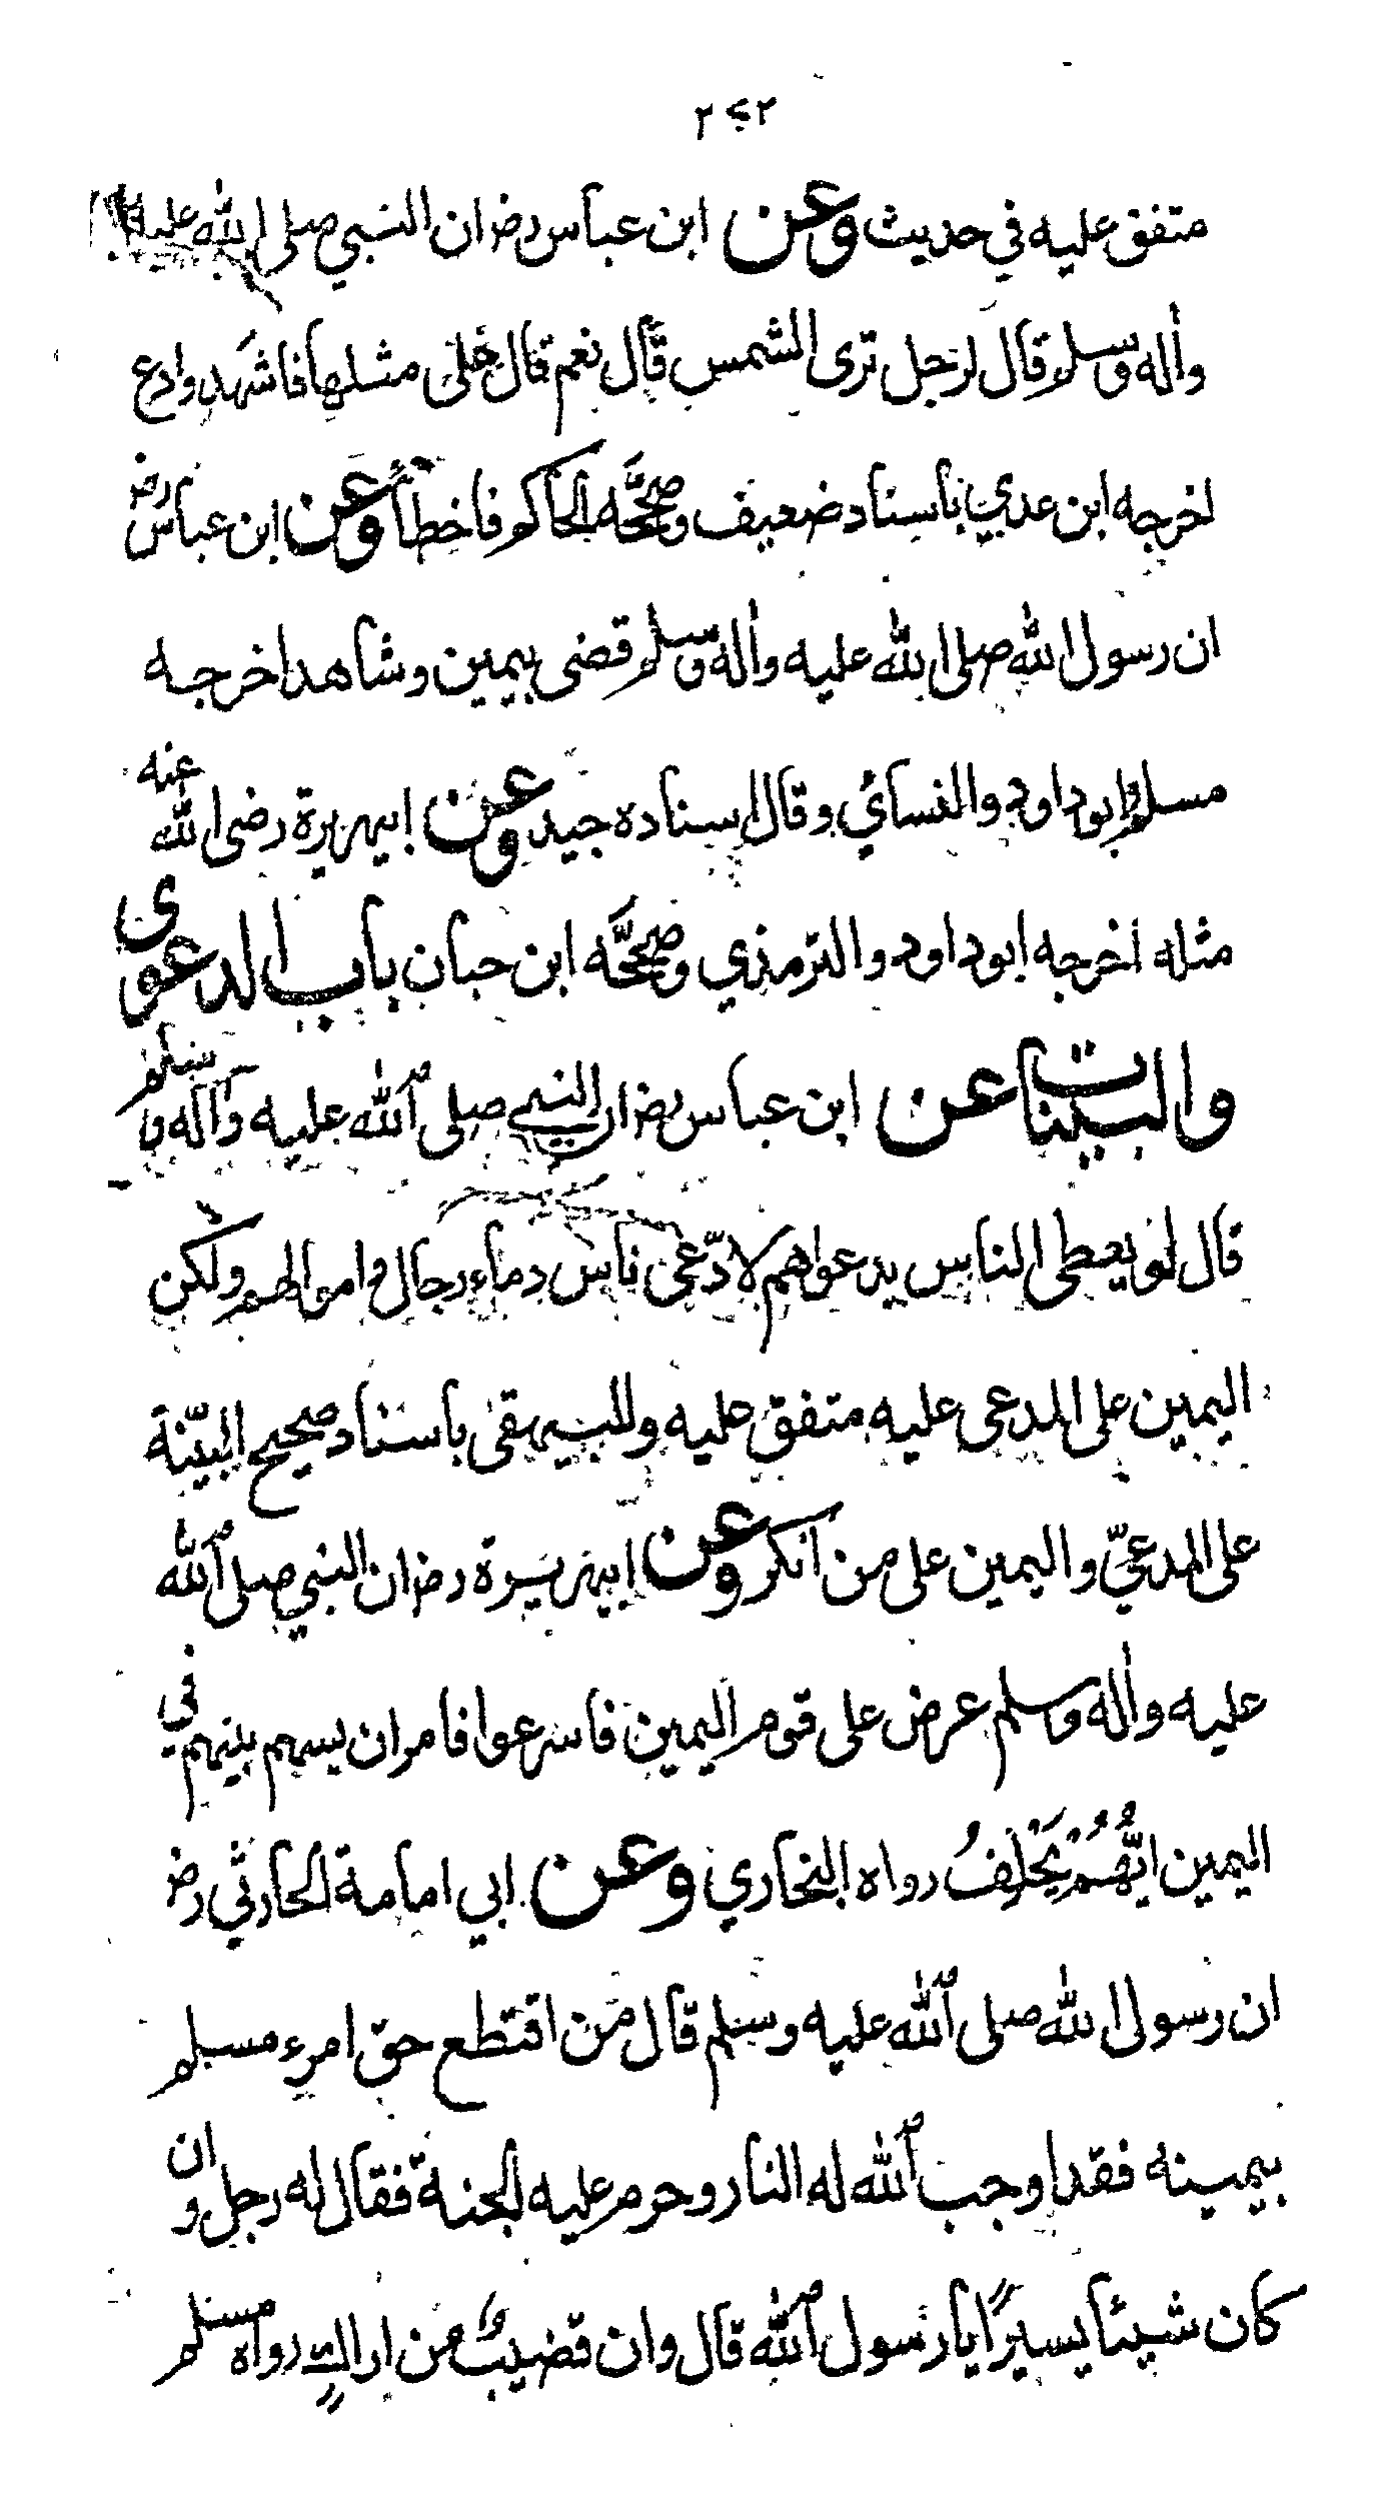 ٢٤٢
متفق عليه في حديث وعن ابن عباس رضـ ان النبي صلى الله عليه
واله وسلم قال لرجل ترى الشمس قال نعم قال على مثلها فاشهد وادع
اخرجه ابن عدي باسناد ضعيف وصححه الحاكم فاخطأ وعن ابن عباس رضـ
ان رسول الله صلى الله عليه واله وسلم قضى بيمين وشاهد اخرجه
مسلم وابو داود والنسائي وقال اسناده جيد وعن ابيهريرة رضى الله عنه
مثله اخرجه ابو داود والترمذي وصححه ابن حبان باب الدعوى
والبينات عن ابن عباس رضـ ان النبي صلى الله عليه وآله وسلم
قال لو يعطى الناس بدعواهم لادّعى ناس دماء رجال واموالهم ولكن
اليمين على المدعى عليه متفق عليه وللبيهقى باسناد صحيح البيّنة
على المدعيّ واليمين على من انكر وعن ابيهريرة رضـ ان النبي صلى الله
عليه واله وسلم عرض على قوم اليمين فاسرعوا فامر ان يسهم بينهم في
اليمين ايُّهُمْ يَحْلِفُ رواه البخاري وعن ابي امامة الحارثي رضـ
ان رسول الله صلى الله عليه وسلم قال من اقتطع حق امرء مسلم
بيمينه فقد اوجب الله له النار وحرم عليه الجنة فقال له رجل وان
كان شيئا يسيرًا يا رسول الله قال وان قضيبٌ من اراكٍ رواه مسلم